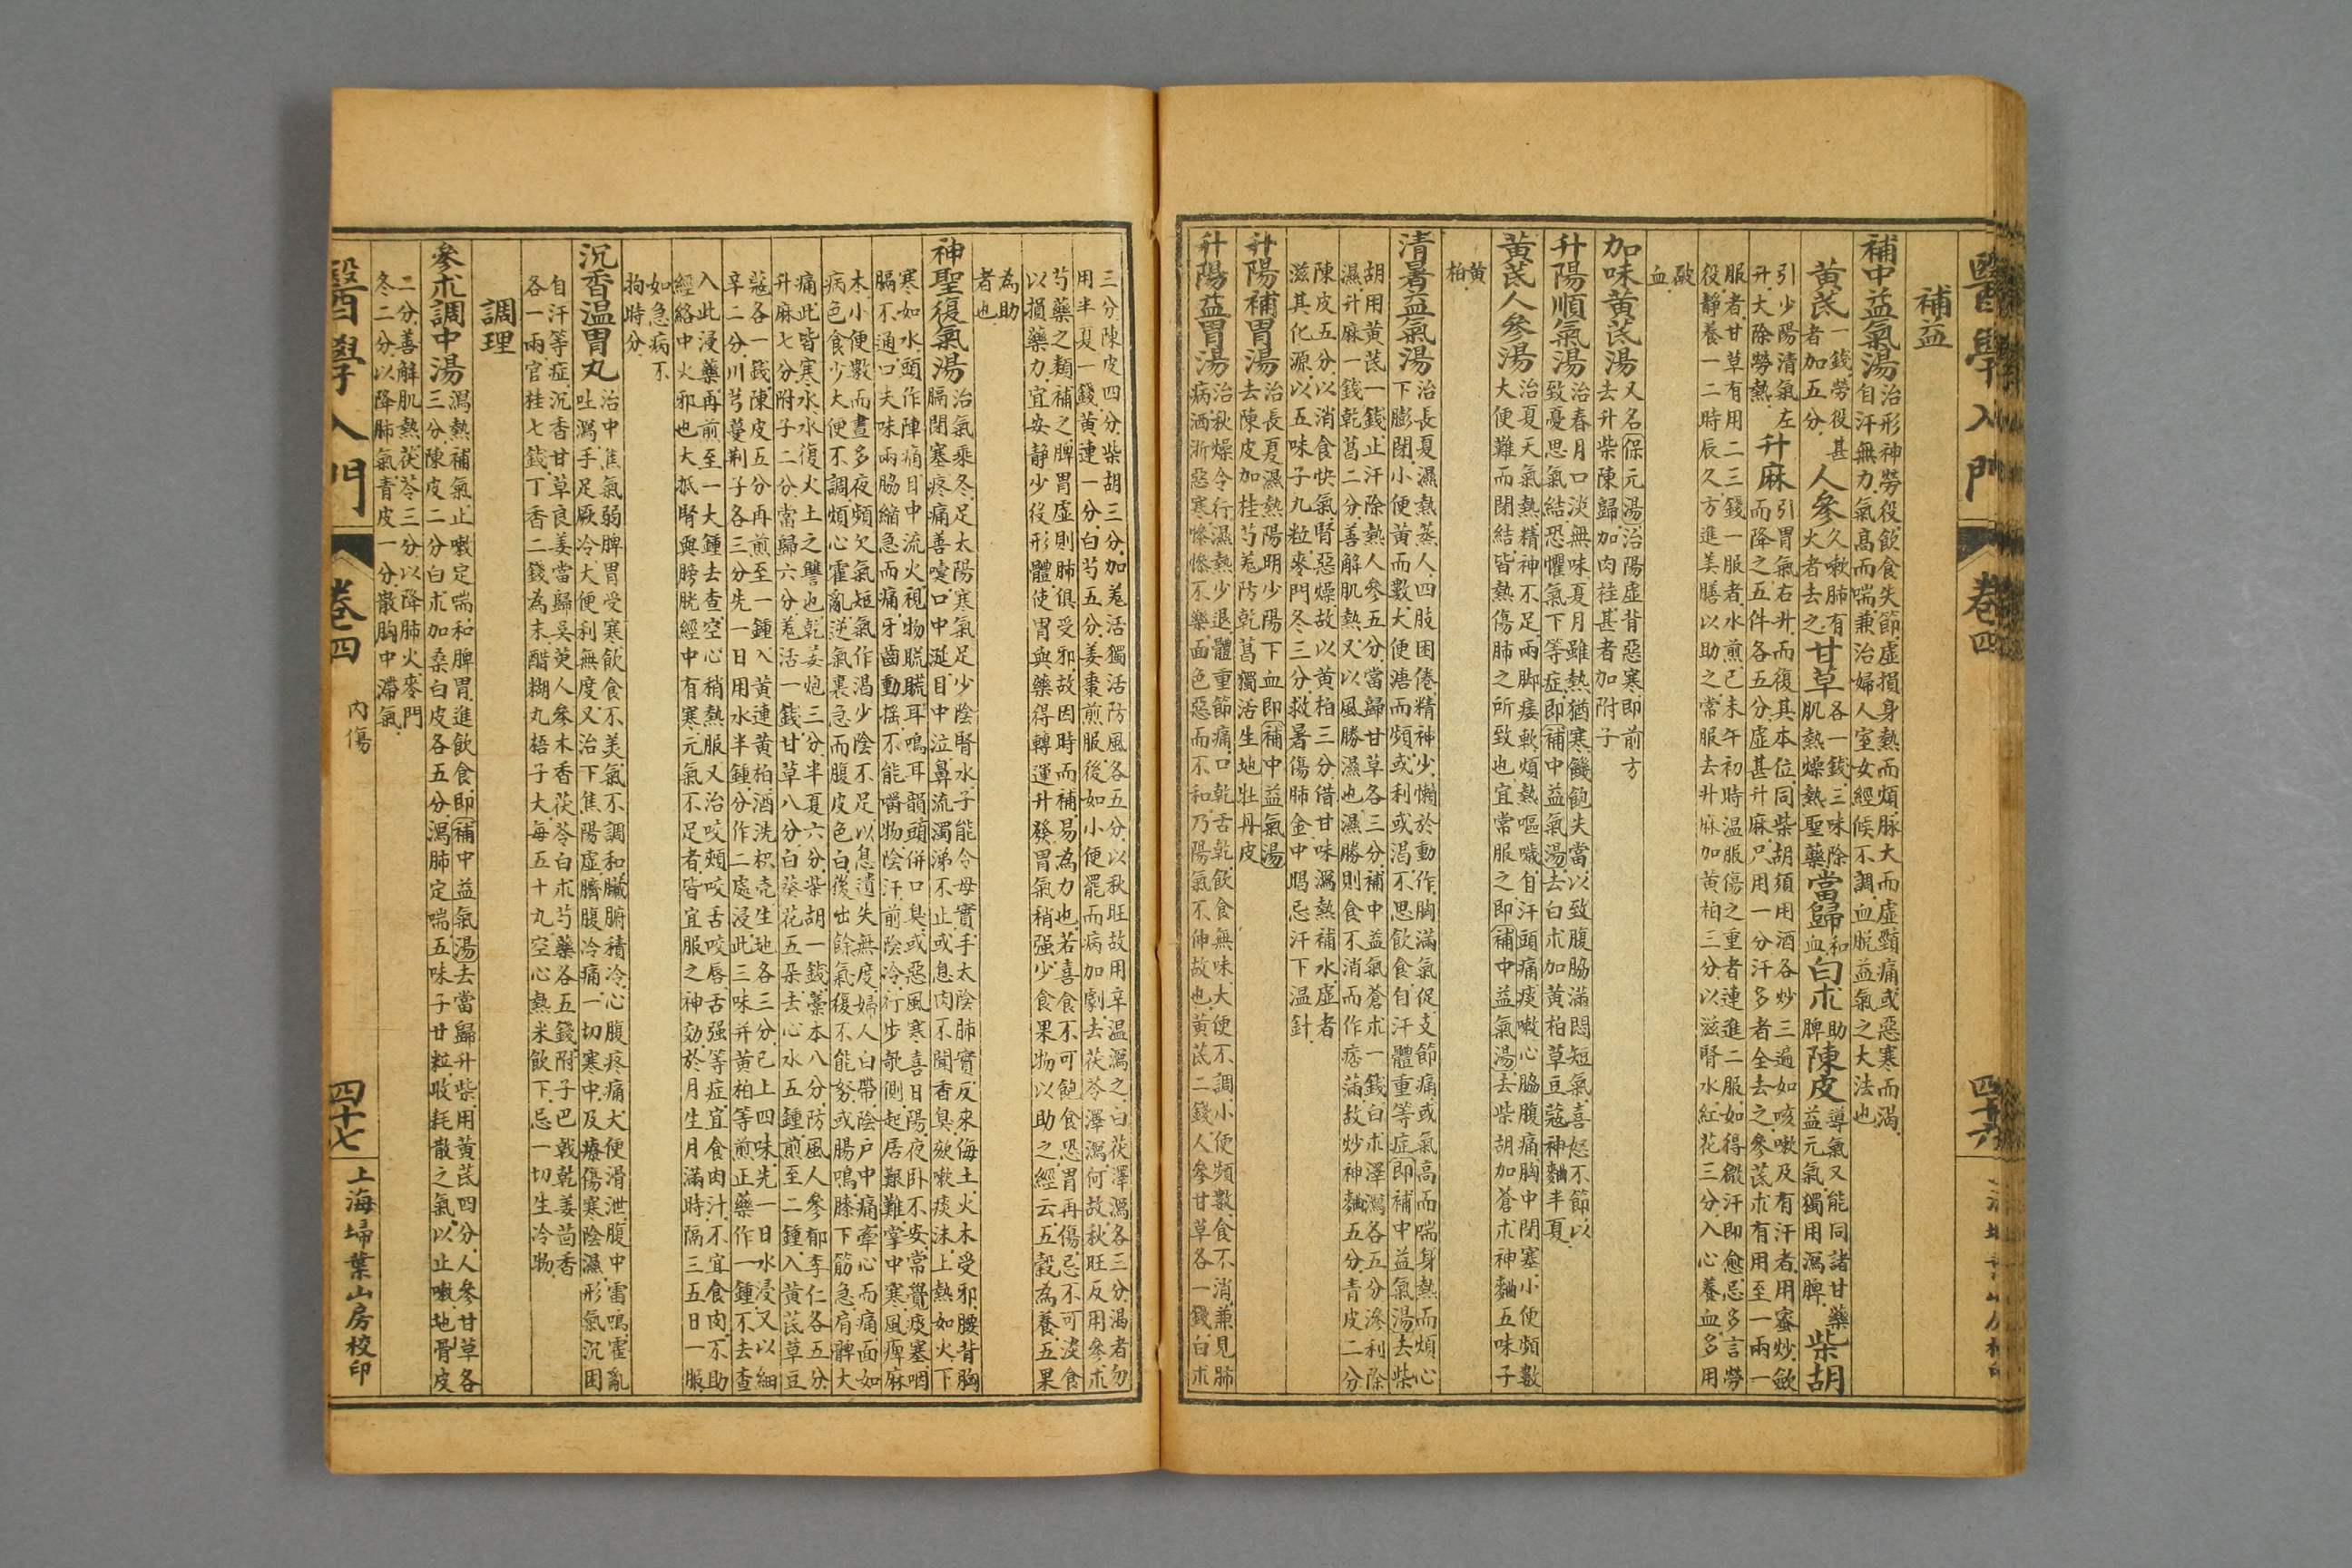 醫學入門 卷四 四十六
補益
補中益氣湯 治形神勞役飲食失節虛損身熱而煩脉大而虛頭痛或惡寒而渴
自汗無力氣高而喘兼治婦人室女經候不調血脱益氣之大法也
黄芪 一錢勞役甚者加五分 人參 久嗽肺有火者去之 甘草 各一錢三味除肌熱燥熱聖藥 當歸 和血 白朮 助脾 陳皮 導氣又能同諸甘藥益元氣獨用瀉脾 柴胡
引少陽清氣左升大除勞熱 升麻 引胃氣右升而復其本位同柴胡須用酒各炒三遍如咳嗽及有汗者用蜜炒歛
而降之五件各五分虛甚升麻只用一分汗多者全去之參芪朮有用至一兩一
服者甘草有用二三錢一服者水煎已未午初時温服傷之重者連進二服如得微汗即愈忌多言勞
役静養一二時辰久方進美膳以助之常服去升麻加黄柏三分以滋腎水紅花三分入心養血多用
破
血
加味黄芪湯 又名保元湯治陽虛背惡寒即前方
去升柴陳歸加肉桂甚者加附子
升陽順氣湯 治春月口淡無味夏月雖熱猶寒饑飽失當以致腹脇滿悶短氣喜怒不節以
致憂思氣結恐懼氣下等症即補中益氣湯去白朮加黄柏草豆蔻神麯半夏
黄芪人參湯 治夏天氣熱精神不足兩脚痿軟煩熱嘔噦自汗頭痛痰嗽心脇腹痛胸中閉塞小便頻數
大便難而閉結皆熱傷肺之所致也宜常服之即補中益氣湯去柴胡加蒼朮神麯五味子
黄
柏
清暑益氣湯 治長夏濕熱蒸人四肢困倦精神少懶於動作胸滿氣促支節痛或氣高而喘身熱而煩心
下膨閉小便黄而數大便溏而頻或利或渴不思飲食自汗體重等症即補中益氣湯去柴
胡用黄芪一錢止汗除熱人參五分當歸甘草各三分補中益氣蒼朮一錢白朮澤瀉各五分滲利除
濕升麻一錢乾葛二分善解肌熱又以風勝濕也濕勝則食不消而作痞滿故炒神麯五分青皮二分
陳皮五分以消食快氣腎惡燥故以黄柏三分借甘味瀉熱補水虛者
滋其化源以五味子九粒麥門冬三分救暑傷肺金中暍忌汗下温針
升陽補胃湯 治長夏濕熱陽明少陽下血即補中益氣湯
去陳皮加桂芍羌防乾葛獨活生地牡丹皮
升陽益胃湯 治秋燥令行濕熱少退體重節痛口乾舌乾飲食無味大便不調小便頻數食不消兼見肺
病洒淅惡寒慘慘不樂面色惡而不和乃陽氣不伸故也黄芪二錢人參甘草各一錢白朮
三分陳皮四分柴胡三分加羌活獨活防風各五分以秋旺故用辛温瀉之白茯澤瀉各三分渴者勿
用半夏一錢黄連一分白芍五分姜棗煎服後如小便罷而病加劇去茯苓澤瀉何故秋旺反用參朮
芍藥之類補之脾胃虛則肺俱受邪故因時而補易為力也若喜食不可飽食恐胃再傷忌不可淡食
以損藥力宜安静少役形體使胃與藥得轉運升發胃氣稍强少食果物以助之經云五穀為養五果
為助
者也
神聖復氣湯 治氣乘冬足太陽寒氣足少陰腎水子能令母實手太陰肺實反來侮土火木受邪腰背胸
膈閉塞疼痛善嚏口中涎目中泣鼻流濁涕不止或息肉不聞香臭欬嗽痰沫上熱如火下
寒如水頭作陣痛目中流火視物䀮䀮耳鳴耳韻頭併口臭或惡風寒喜日陽夜卧不安常覺痰塞咽
膈不通口夫味兩脇縮急而痛牙齒動摇不能嚼物陰汗前陰冷行步欹側起居艱難掌中寒風痺麻
木小便數而晝多夜頻欠氣短氣作渴少陰不足以息遺失無度婦人白帶陰户中痛牽心而痛面如
病色食少大便不調煩心霍亂逆氣裏急而腹皮色白後出餘氣復不能努或腸鳴膝下筋急肩髀大
痛此皆寒水水復火土之讐也乾姜炮三分半夏六分柴胡一錢藁本八分防風人參郁李仁各五分
升麻七分附子二分當歸六分羌活一錢甘草八分白葵花五朶去心水五鍾煎至二鍾入黄芪草豆
蔻各一錢陳皮五分再煎至一鍾入黄連黄柏酒洗枳壳生地各三分已上四味先一日水浸又以細
辛二分川芎蔓荆子各三分先一日用水半鍾分作二處浸此三味并黄柏等煎正藥作一鍾不去查
入此浸藥再前至一大鍾去查空心稍熱服又治咬頰咬舌咬唇舌强等症宜食肉汁不宜食肉不助
經絡中火邪也大抵腎與膀胱經中有寒元氣不足者皆宜服之神効於月生月滿時隔三五日一服
如急病不
拘時分
沉香温胃丸 治中焦氣弱脾胃受寒飲食不美氣不調和臟腑積冷心腹疼痛大便滑泄腹中雷鳴霍亂
吐瀉手足厥冷大便利無度又治下焦陽虛臍腹冷痛一切寒中及療傷寒陰濕形氣沉困
自汗等症沉香甘草良姜當歸吳茰人參木香茯苓白朮芍藥各五錢附子巴戟乾姜茴香
各一兩官桂七錢丁香二錢為末醋糊丸梧子大每五十丸空心熱米飲下忌一切生冷物
調理
參朮調中湯 瀉熱補氣止嗽定喘和脾胃進飲食即補中益氣湯去當歸升柴用黄芪四分人參甘草各
三分陳皮二分白朮加桑白皮各五分瀉肺定喘五味子廿粒收耗散之氣以止嗽地骨皮
二分善解肌熱茯苓三分以降肺火麥門
冬二分以降肺氣青皮一分散胸中滯氣
醫學入門 卷四 內傷 四十七 上海埽葉山房校印